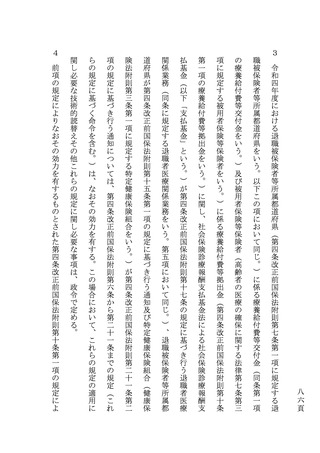 ３　令和四年度における退職被保険者等所属都道府県（第四条改正前国保法附則第七条第一項に規定する退
職被保険者等所属都道府県をいう。以下この項において同じ。）に係る療養給付費等交付金（同条第一項
の療養給付費等交付金をいう。）及び被用者保険等保険者（高齢者の医療の確保に関する法律第七条第三
項に規定する被用者保険等保険者をいう。）に係る療養給付費等拠出金（第四条改正前国保法附則第十条
第一項の療養給付費等拠出金をいう。）に関し、社会保険診療報酬支払基金法による社会保険診療報酬支
払基金（以下「支払基金」という。）が第四条改正前国保法附則第十七条の規定に基づき行う退職者医療
関係業務（同条に規定する退職者医療関係業務をいう。第五項において同じ。）、退職被保険者等所属都
道府県が第四条改正前国保法附則第十五条第一項の規定に基づき行う通知及び特定健康保険組合（健康保
険法附則第三条第一項に規定する特定健康保険組合をいう。）が第四条改正前国保法附則第二十一条第二
項の規定に基づき行う通知については、第四条改正前国保法附則第六条から第二十一条までの規定（これ
らの規定に基づく命令を含む。）は、なおその効力を有する。この場合において、これらの規定の適用に
関し必要な技術的読替えその他これらの規定に関し必要な事項は、政令で定める。
４　前項の規定によりなおその効力を有するものとされた第四条改正前国保法附則第十条第一項の規定によ
八六頁